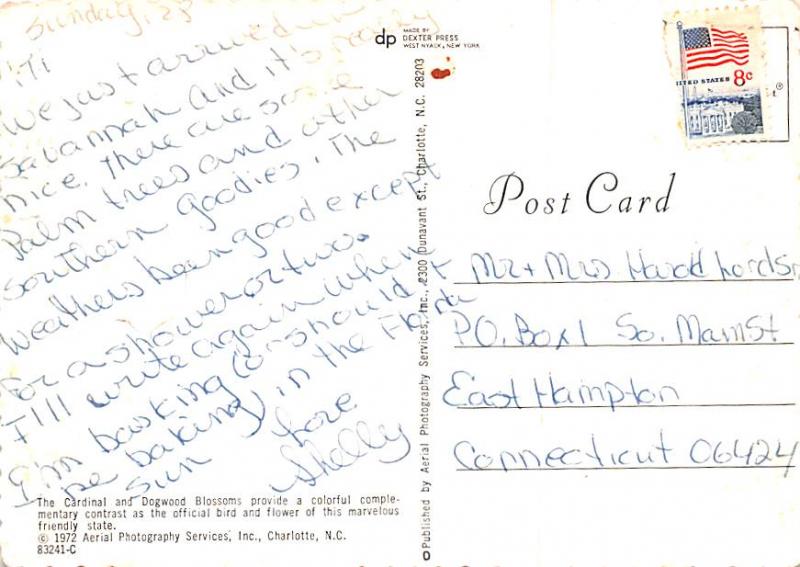 Sunday, 23
Hi
We just arrived in
Savannah and it's really
nice. There are some
Palm trees and other
southern goodies. The
Weathers been good except
for a shower or two.
I'll write again when
I'm basking (or should it
be baking) in the Florida
sun
Love
Shelly
The Cardinal and Dogwood Blossoms provide a colorful comple-
mentary contrast as the official bird and flower of this marvelous
friendly state.
© 1972 Aerial Photography Services, Inc., Charlotte, N.C.
83241-C
dp
MADE BY
DEXTER PRESS
WEST NYACK, NEW YORK
©Published by Aerial Photography Services, Inc., 2300 Dunavant St., Charlotte, N.C. 28203
UNITED STATES 8c
Post Card
Mr + Mrs Harold
P.O. Box 1 So. Main St
East Hampton
Connecticut 06424